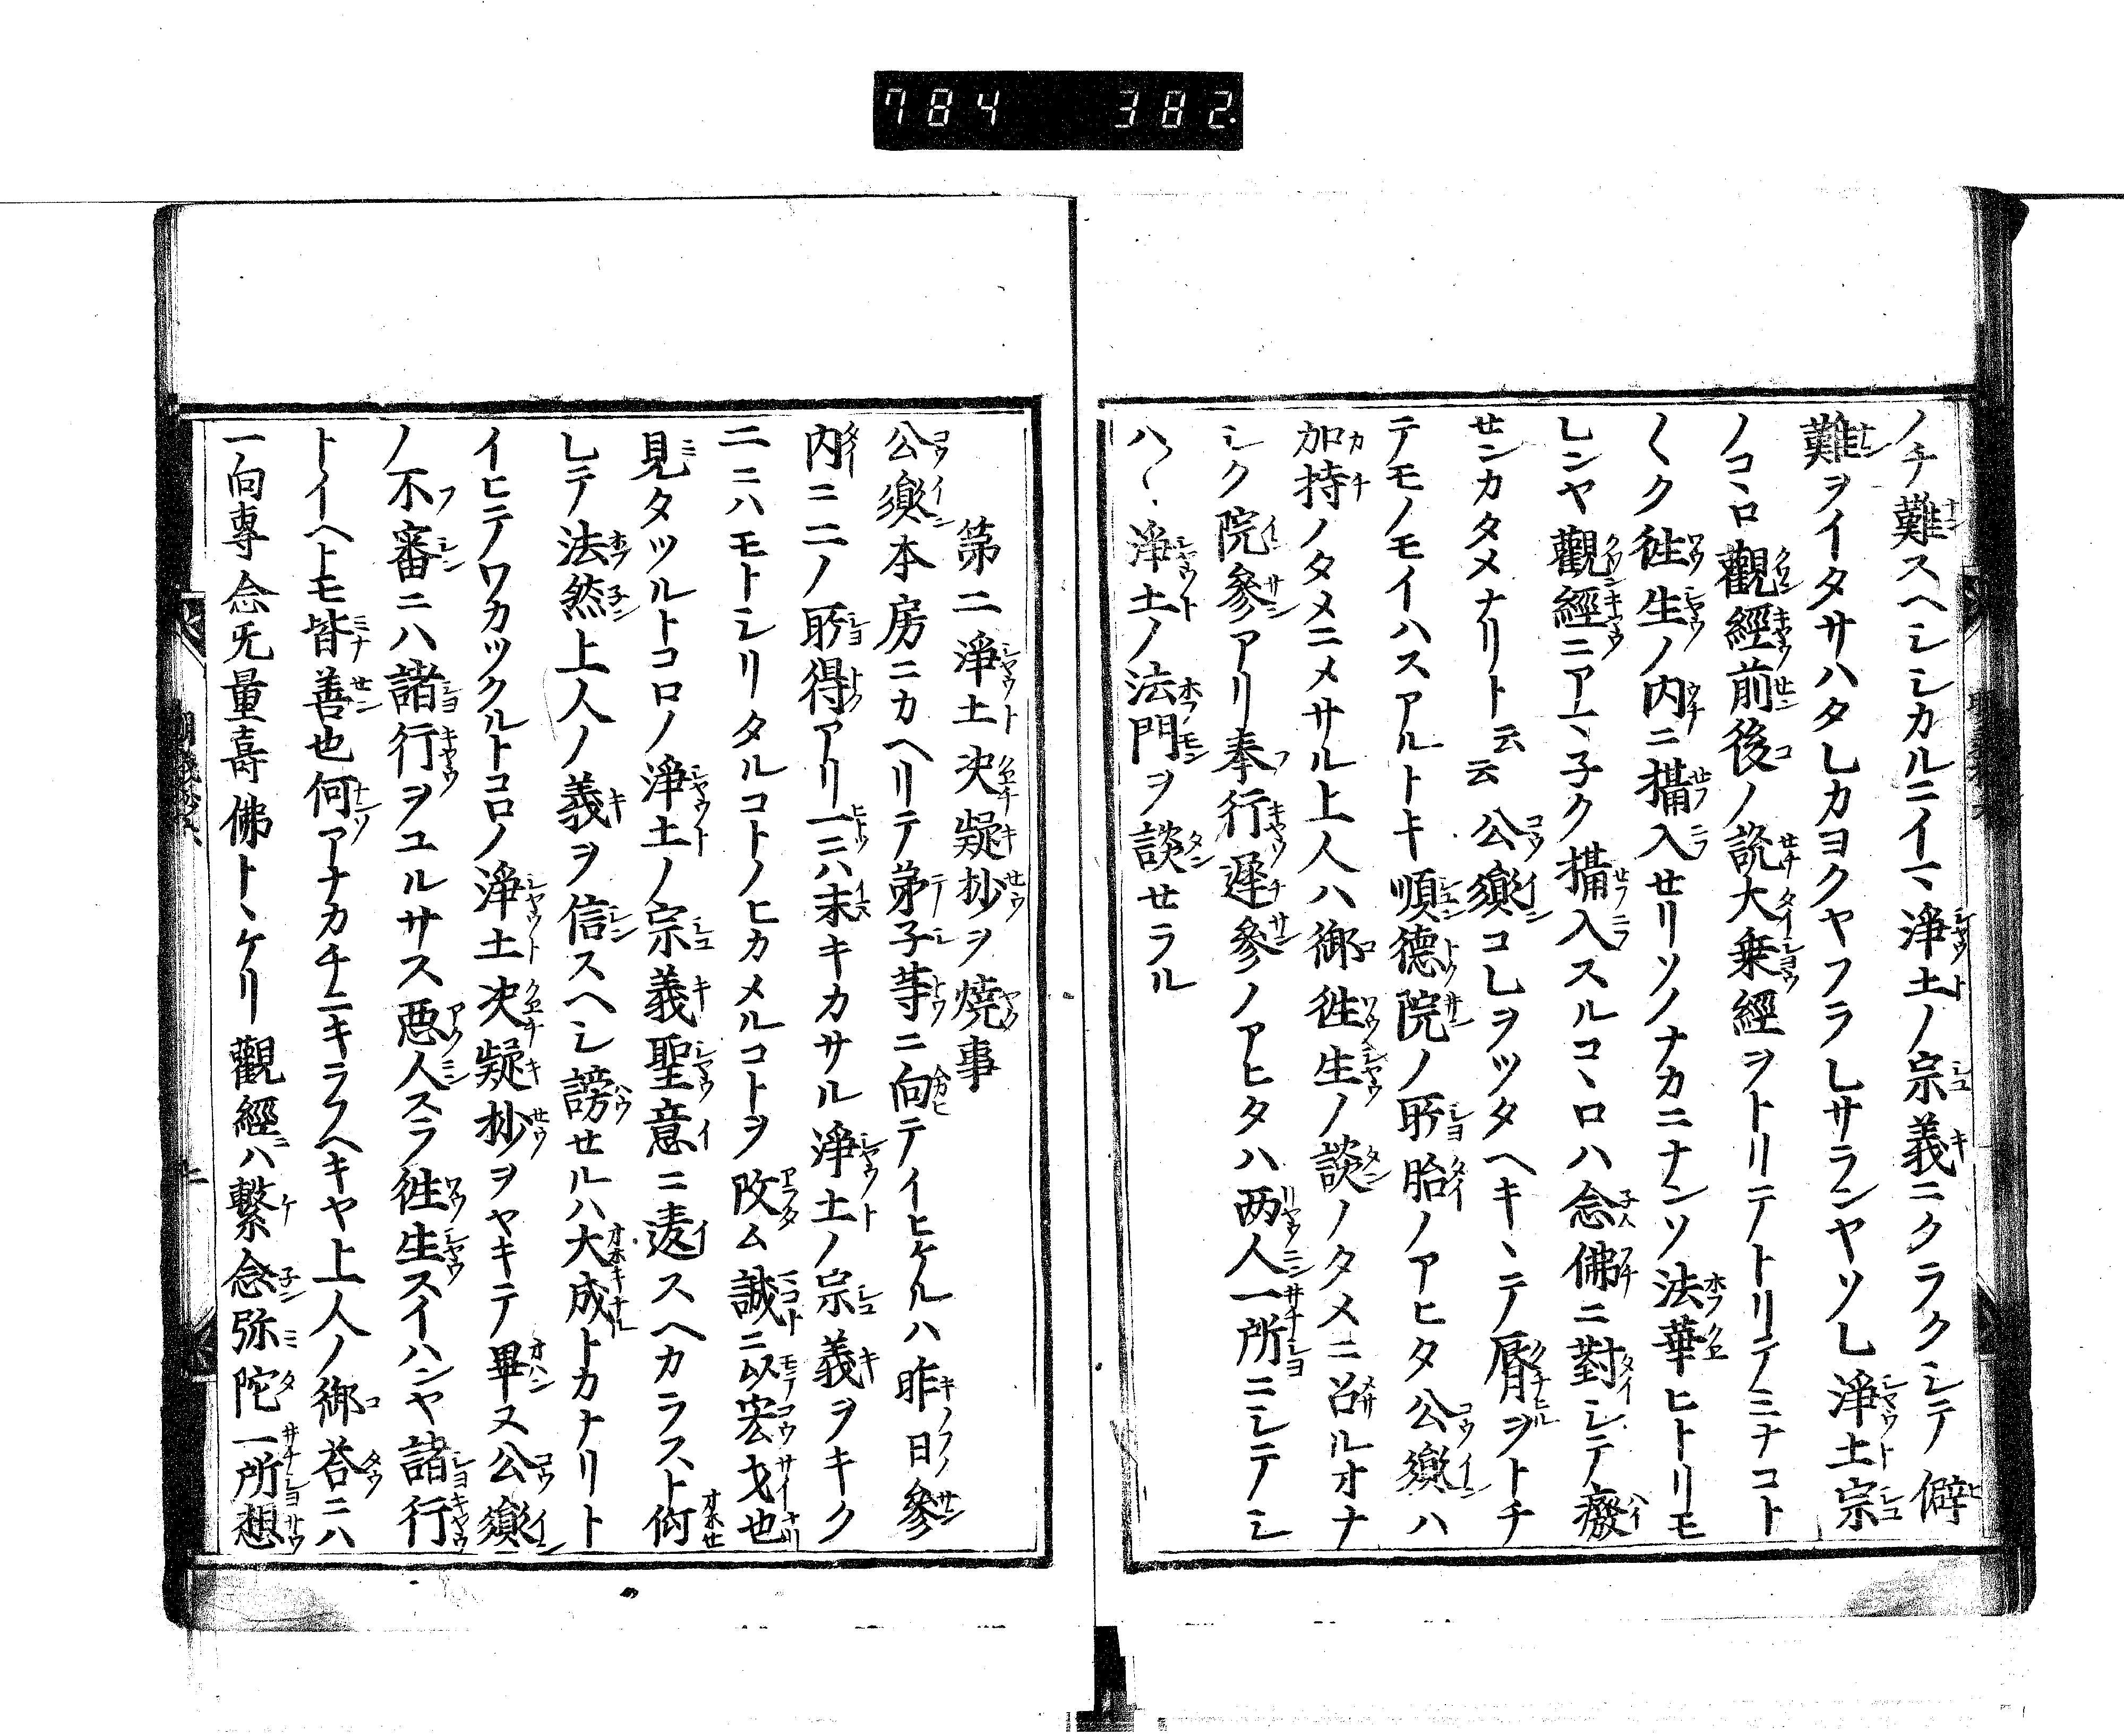 784 382.
ノチ難スヘシシカルニイマヽ浄土ノ宗義ニクラクシテ僻
難ヲイタサハタレカヨクヤフラレサランヤソレ浄土宗
ノコヽロ觀經前後ノ説大乗經ヲトリテノトリテノミナコト
〱ク徃生ノ内ニ攝入セリソノナカニナンソ法華ヒトリモ
レンヤ觀經ニアマヽ子ク攝入スルコヽロハ念佛ニ對シテ癈
センカタメナリト云云公㣧コレヲツタヘキヽテノ脣ヲトチ
テモノモイハスアルトキ順德院ノ所胎ノアヒタ公㣧ハ
加持ノタメニメサル上人ハ御徃生ノ談ノタメニ召ルオナ
シク院參アリ奉行遅參ノアヒタハ两人一所ニシテノシ
ハ〱浄土ノ法門ヲ談セラル
第二浄土决疑抄ヲ燒事
公㣧本房ニカヘリテ弟子等ニ向テイヒケルハ昨日參
内ニ二ノ所得アリ一ニハ未キカサル浄土ノ宗義ヲキク
二ニハモトシリタルコトノヒカメルコトヲ改ム誠ニ以宏才也
見タツルトコロノ浄土ノ宗義聖意ニ違スヘカラスト仰
シテ法然上人ノ義ヲ信スヘシ謗セルハ大成トカナリト
イヒテワカツクルトコロノ浄土决疑抄ヲヤキテ畢ヌ公㣧
ノ不審ニハ諸行ヲユルサス惡人スラ徃生スイハンヤ諸行
トイヘトモ皆善也何アナカチニキラフヘキヤ上人ノ御荅ニハ
一向專念无量壽佛トヽケリ觀經ニハ繫念弥陀一所想